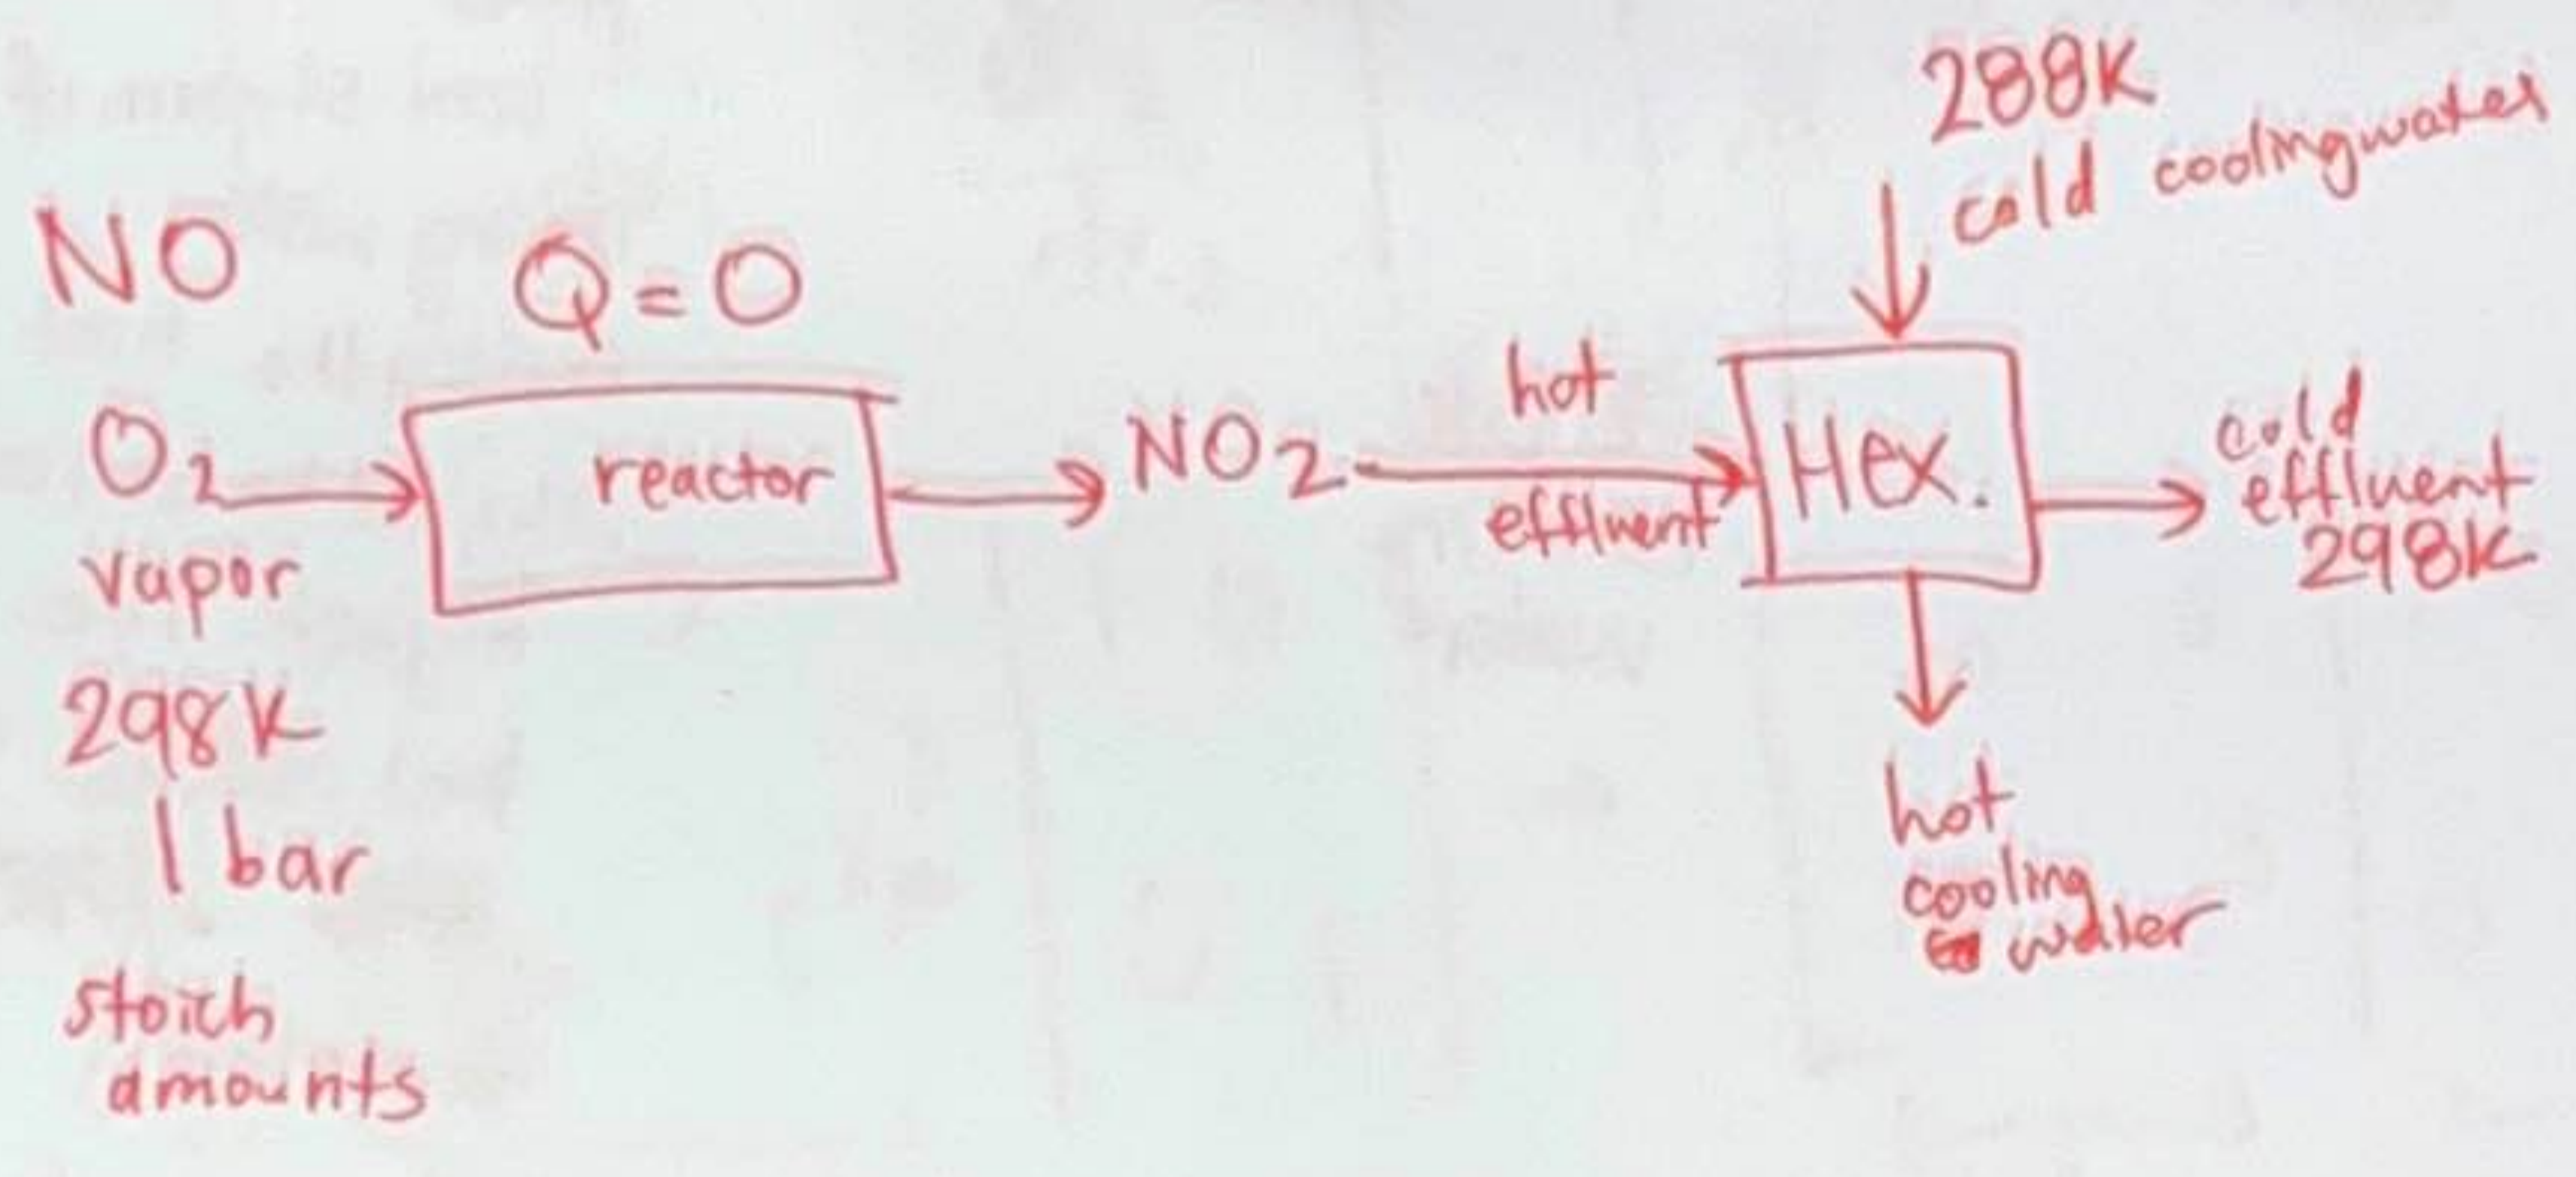 NO
O2
vapor
298K
1 bar
stoich
amounts
Q=0
reactor
NO2
hot
effluent
288K
cold coolingwater
Hex.
cold
effluent
298K
hot
cooling
water